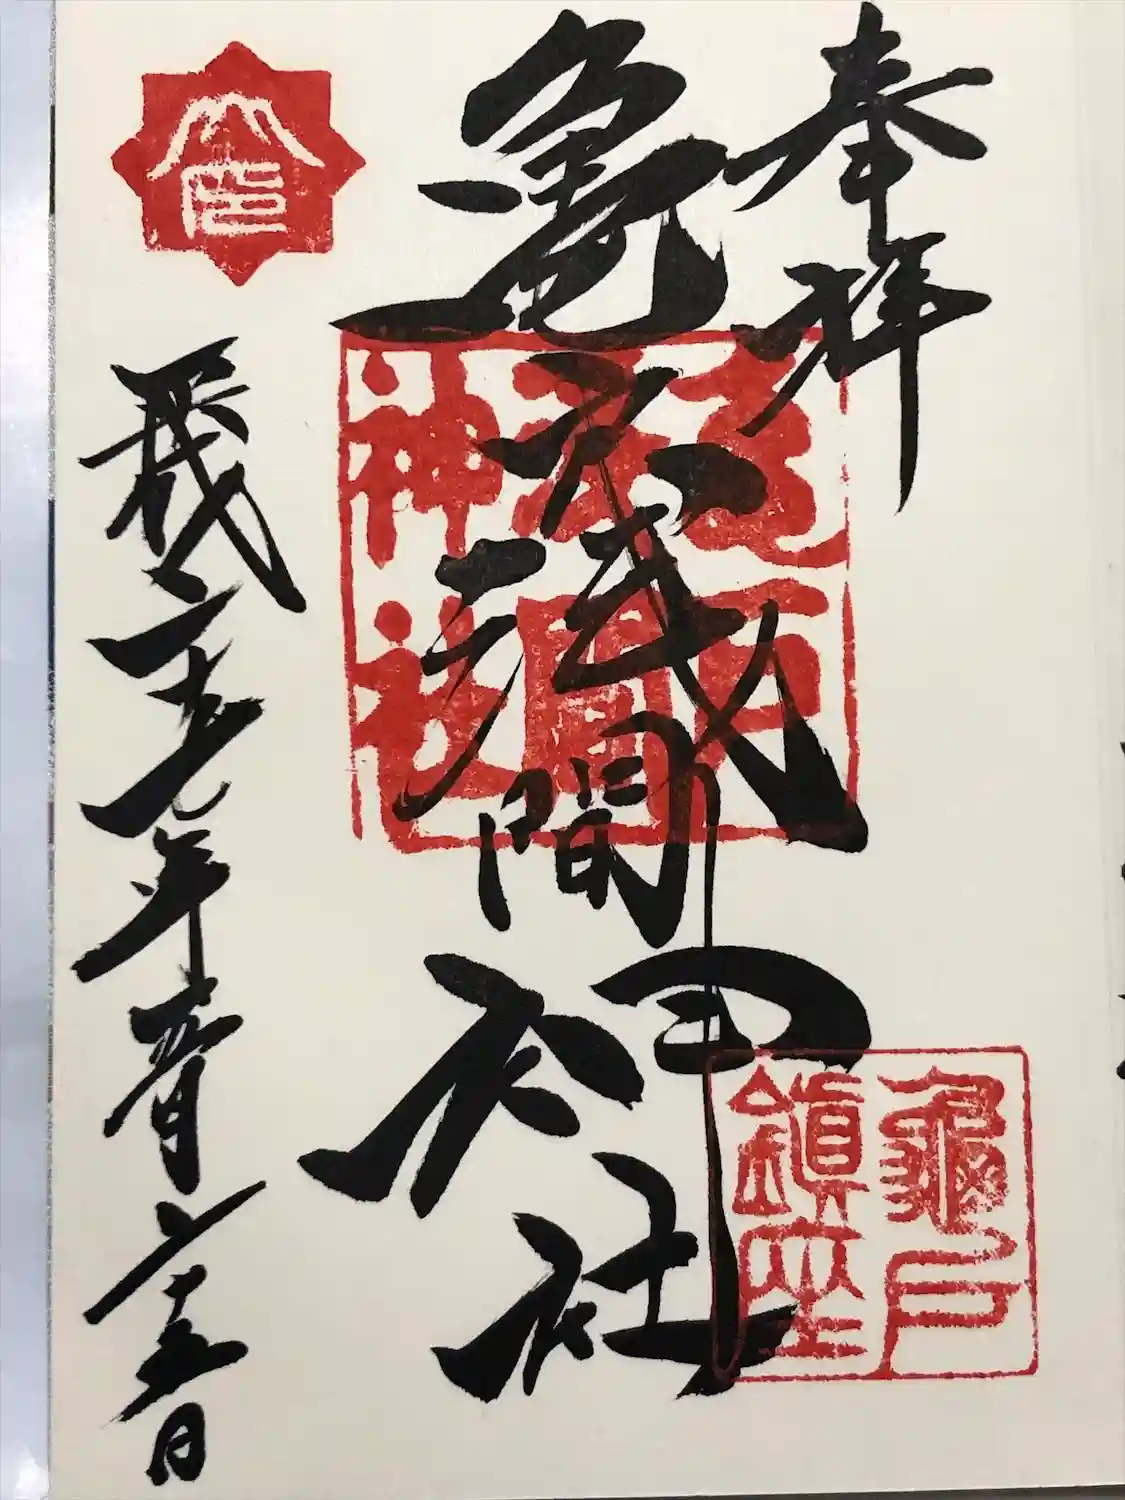 奉拝
亀戸浅間神社
亀戸
浅間
神社
龜戸
鎮座
平成
年五月二十五日